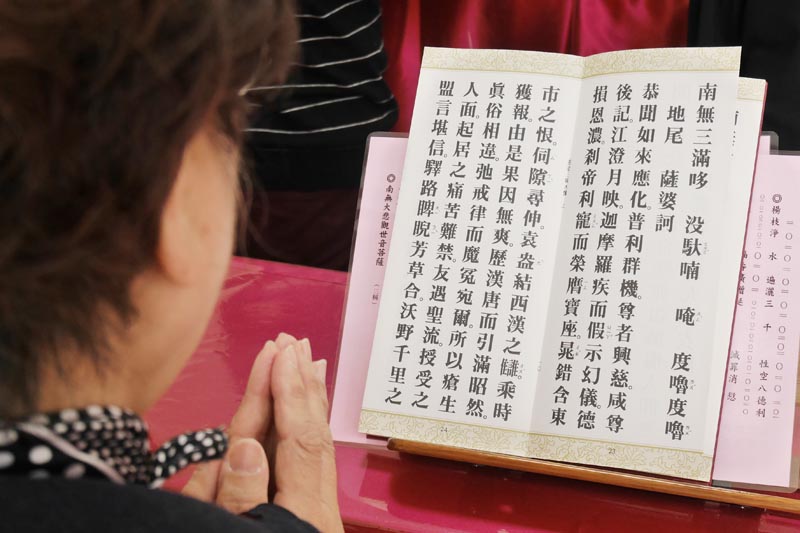 ◎楊枝淨水 遍灑三千 性空八德利
滅罪消愆
南無三滿哆 没馱喃 唵 度嚕度嚕
地尾 薩婆訶
恭聞如來應化。普利群機。尊者興慈。咸尊
後記。江澄月映。迦摩羅疾而假示幻儀。德
損恩濃。刹帝利龍而榮膺寶座。晁錯含東
23
市之恨。伺隙尋仲。袁盎結西漢之讎。乘時
獲報。由是果因無爽。歷漢唐而引滿昭然。
眞俗相違。弛戒律而魔冤宛爾。所以瘡生
人面。起居之痛苦難禁。友遇聖流。授受之
盟言堪信。驛路睥睨芳草合。沃野千里之
24
◎南無大悲觀世音菩薩